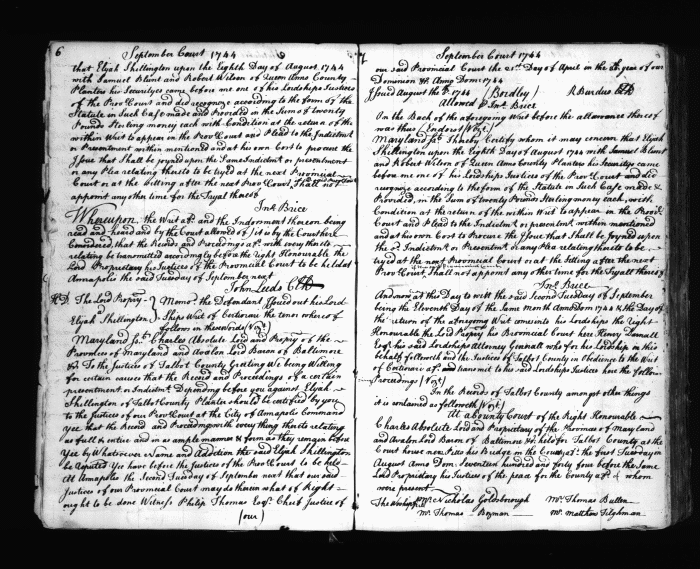 6
September Court 1744
that Elijah Skillington upon the Eighth Day of August 1744
with Samuel Blunt and Robert Wilson of Queen Anns County
Planters his Securitys came before me one of his Lordships Justices
of the Prov. Court and did recognize according to the form of the
Statute in Such Case made and Provided in the Sum of twenty
Pounds Sterling money each with Condition at the return of the
within Writ to appear in the Prov. Court and Plead to the Indictmt.
or Presentment within mentioned and at his own Cost to procure the
Issue that Shall be joyned upon the Same Indictment or presentment
or any Plea relating thereto to be tryed at the next Provincial
Court or at the Sitting after the next Prov. Court Shall not
appoint any other time for the Tryal thereof
Jno. Brice
Whereupon the Writ afd. and the Indorsment thereon being
read and heard and by the Court allowed of it is by the Court here
Considered, that the Record and Proceedings afd. with every thing
relating be transmitted accordingly before the Right Honourable the
Lord Proprietary his Justices of the Provincial Court to be held at
Annapolis the said Second Tuesday of September next
John Leeds Clk
The Lord Propry.
Elijah Skillington
Memo. the Defendant Issued out his Lord
Ships Writ of Certiorari the tenor whereof
follows in these words (Vizt.)
Maryland Sct. Charles Absolute Lord and Propry of the
Provinces of Maryland and Avalon Lord Baron of Baltimore
&c. To the Justices of Talbot County Greeting We being Willing
for certain causes that the Record and Proceedings of a certain
presentment or Indictmt. Depending before you against Elijah
Skillington of Talbot County Planter should be certified by you
to the Justices of our Prov. Court at the City of Annapolis Command
yee that the Record and Proceedings with every thing thereto relating
as full & entire and in as ample manner & form as they remain before
yee by Whatsoever Name and Addition the said Elijah Skillington
be Reputed Yee have before the Justices of the Prov. Court to be held
At Annapolis the Second Tuesday of September next that our said
Justices of our Provincial Court may do thereon what of Right
ought to be done Witness Philip Thomas Esqr. Chief Justice of
(our)
7
September Court 1744
our said Provincial Court the 21st Day of April in the year of our
Dominion &c. Anno Dom: 1744
Issued August 1744 (Bordley) R Burdus Clk
Allowed Jno. Brice
On the Back of the aforegoing Writ before the allowance thereof
was thus Endorst (Vizt.)
Maryland Sct. I hereby Certify whom it may concern that Elijah
Skillington upon the Eighth Day of August 1744 with Samuel Blunt
and Robert Wilson of Queen Anns County Planters his Securitys came
before me one of his Lordships Justices of the Prov. Court and did
recognize according to the form of the Statute in such Case made &
Provided, in the Sum of twenty Pounds Sterling money each, with
Condition at the return of the within Writ to appear in the Provl.
Court and Plead to the Indictmt. or presentmt. within mentioned
and at his own Cost to Procure the Issue that Shall be joyned upon
the sd. Indictmt. or Presentmt. or any Plea relating thereto to be
tryed at the next Provincial Court or at the Sitting after the next
Prov. Court Shall not appoint any other time for the Tryall thereof
Jno. Brice
And now at this Day to wit the said Second Tuesday of September
being the Eleventh Day of the Same month Anno Dom 1744 & the Day of
the return of the aforegoing Writ comes into his Lordships the Right
Honourable the Lord Propry his Provincial Court here Henry Darnall
Esqr. his said Lordships Attorney Generall who for his Lordship in this
behalf followeth and the Justices of Talbot County in Obedience to the Writ
of Certiorari afd. and transmit to his said Lordships Justices here the follow
Proceedings (Vizt.)
In the Records of Talbot County amongst other things
it is contained as followeth (Vizt.)
At a County Court of the Right Honourable
Charles Absolute Lord and Proprietary of the Provinces of Maryland
and Avalon Lord Baron of Baltimore &c. held for Talbot County at the
Court house near Pitts his Bridge in the County afd. the first Tuesday in
August Anno Dom: Seventeen hundred and forty four before the Same
Lord Proprietary his Justices of the peace for the County afd. of whom
were present
The Worshipfull Mr. Nicholas Goldsborough Mr. Thomas Button
Mr. Thomas Bozman Mr. Matthew Tilghman